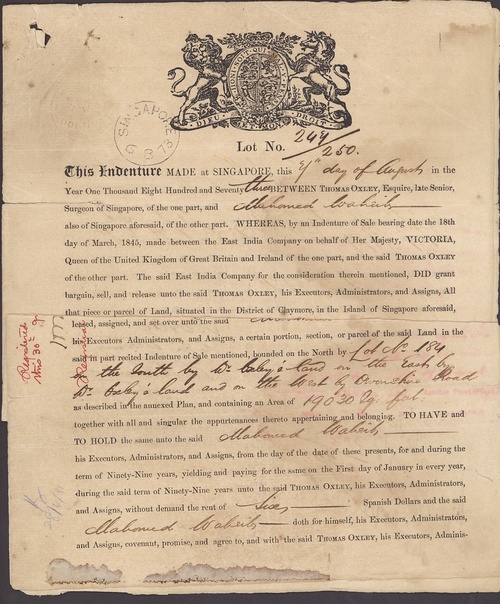 HONI SOIT QUI MAL Y PENSE
DIEU ET MON DROIT
SINGAPORE
73
Lot No. 249/250.
This Indenture MADE at SINGAPORE, this day of August in the
Year One Thousand Eight Hundred and Seventy three BETWEEN THOMAS OXLEY, Esquire, late Senior,
Surgeon of Singapore, of the one part, and Mahomed
also of Singapore aforesaid, of the other part. WHEREAS, by an Indenture of Sale bearing date the 18th
day of March, 1845, made between the East India Company on behalf of Her Majesty, VICTORIA,
Queen of the United Kingdom of Great Britain and Ireland of the one part, and the said THOMAS OXLEY
of the other part. The said East India Company for the consideration therein mentioned, DID grant
bargain, sell, and release unto the said THOMAS OXLEY, his Executors, Administrators, and Assigns, All
that piece or parcel of Land, situated in the District of Claymore, in the Island of Singapore aforesaid,
leased, assigned, and set over unto the said
his Executors, Administrators, and Assigns, a certain portion, section, or parcel of the said Land in the
said in part recited Indenture of Sale mentioned, bounded on the North by Lot No 184
the South by Dr Oxley's land on the East by
Dr Oxley's land and on the West by Devonshire Road
as described in the annexed Plan, and containing an Area of 19030 Sq. feet.
together with all and singular the appurtenances thereto appertaining and belonging. TO HAVE and
TO HOLD the same unto the said Mahomed
his Executors, Administrators, and Assigns, from the day of the date of these present, for and during the
term of Ninety-Nine years, yielding and paying for the same on the First day of January in every year,
during the said term of Ninety-Nine years unto the said THOMAS OXLEY, his Executors, Administrators,
and Assigns, without demand the rent of Spanish Dollars and the said
Mahomed doth for himself, his Executors, Administrators,
and Assigns, covenant, promise, and agree to, and with the said THOMAS OXLEY, his Executors, Adminis-
Registered
this 30th